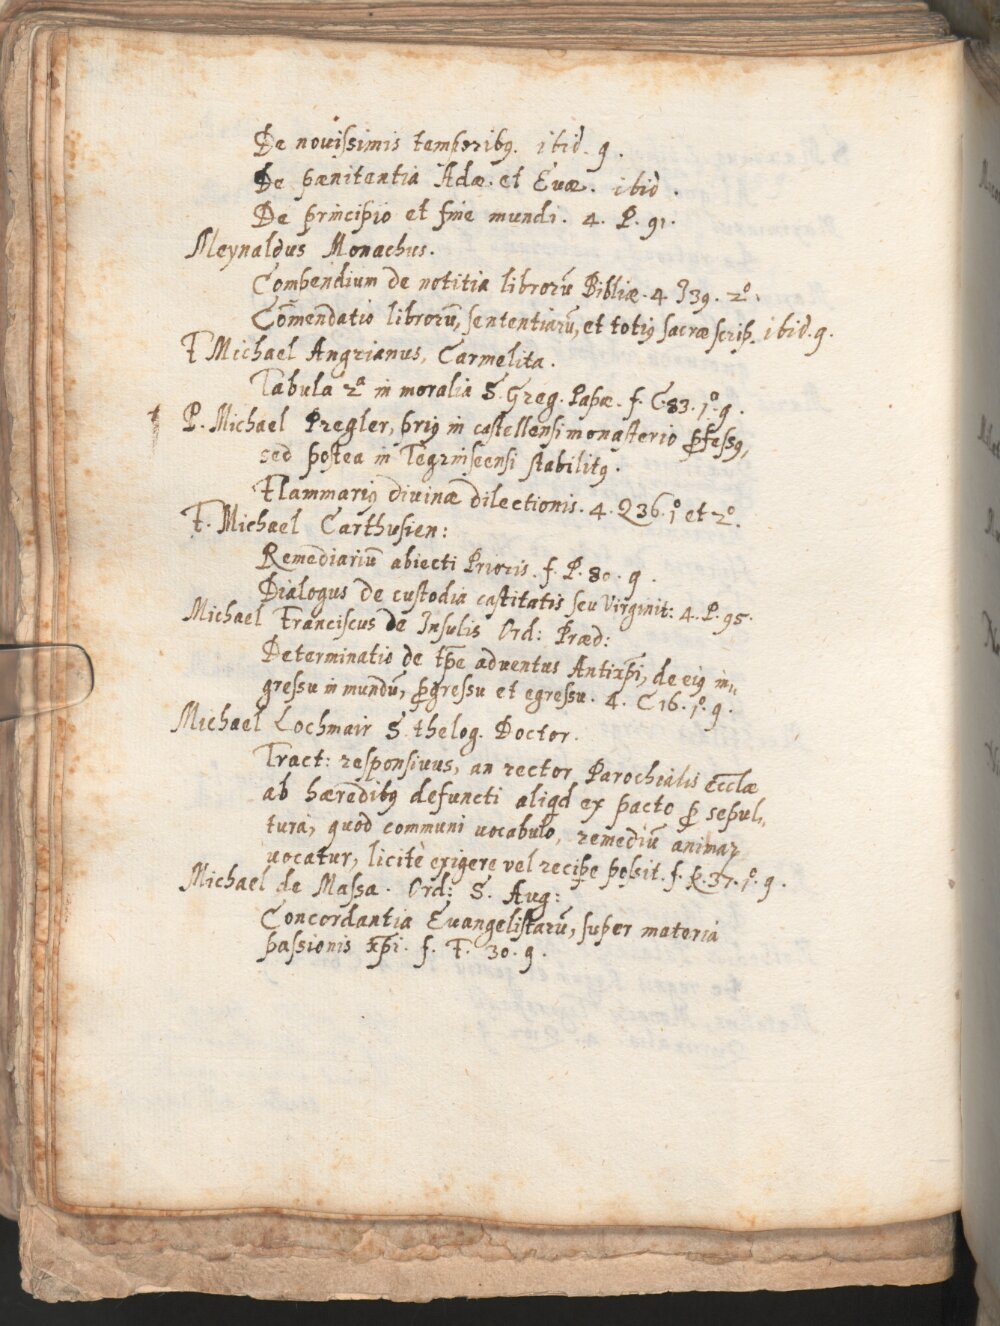 De nouißimis temporibꝫ. ibid. 9.
De pænitentia Adæ. et Euæ. ibid.
De principio et fine mundi. 4. P. 91.
Meynaldus Monachus.
Compendium de notitia librorū Bibliæ. 4. J39. 2º.
Cōmendatio librorū, sententiarū, et totiꝰ sacræ scrip. ibid. 9.
F Michael Angrianus, Carmelita.
Tabula 2ª in moralia S. Greg. Papæ. f. C. 83. 1º. 9.
† P. Michael Pregler, priꝰ in castellensi monasterio ꝓfeßꝰ,
sed postea in Tegrinseensi stabilitꝰ.
Flammariꝰ diuinæ dilectionis. 4. Q36. 1º et 2º.
F. Michael Carthusien:
Remediariū abiecti Prioris. f. P. 80. 9.
Dialogus de custodia castitatis seu Virginit: 4. P. 95.
Michael Franciscus de Insulis Ord: Præd:
Determinatio de tp̄e aduentus Antixp̄i, de eiꝰ in„
greßu in mundū, ꝓgreßu et egreßu. 4. C16. 1º. 9.
Michael Lochmair S. thelog. Doctor.
Tract: responsiuus, an rector Parochialis Eccłæ
ab hæredibꝫ defuncti aliqd ex pacto ꝓ sepul„
tura, quod communi uocabulo, remediū animaꝝ
uocatur, licitè exigere vel recipe poßit. f. K. 37. 1º. 9.
Michael de Maßa. Ord: S. Aug:
Concordantia Euangelistarū, super materia
paßionis xp̄i. f. F. 30. 9.